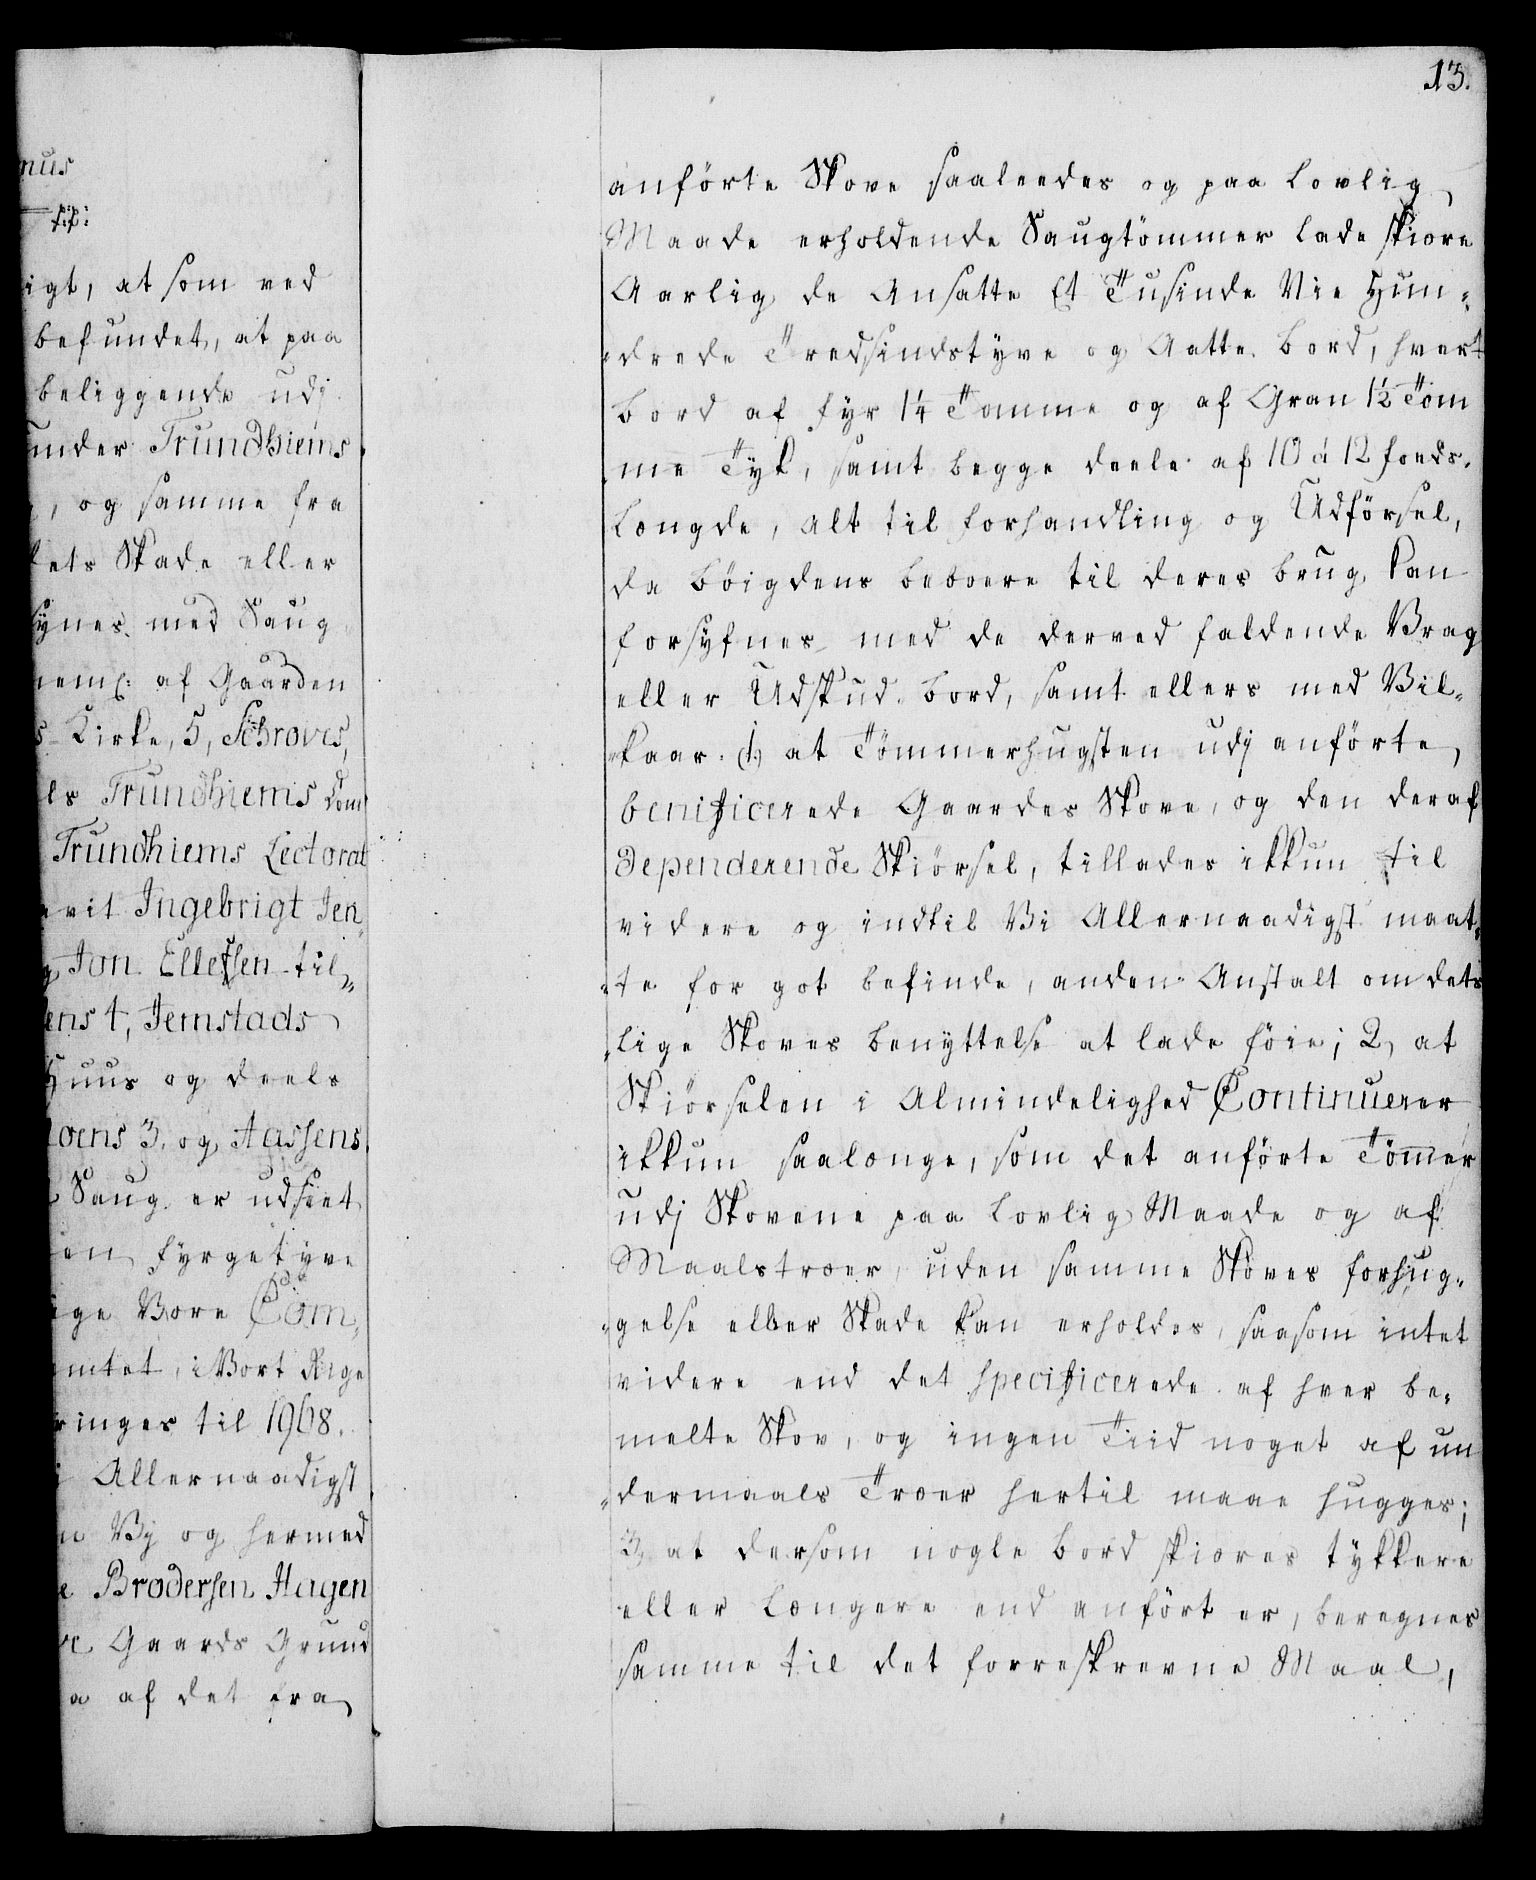 mus
p:p:
igt, at som ved
befundet, at paa
beliggende udj
under Trundhiems
, og samme fra
lets Skade eller
synes med Saug
nemL: af Gaarden
s Kirke, 5, Schroves,
ls Trundhiems Dom
Trundhiems Lectorat
evit Ingebrigt Jen
g Jon Ellefsen til„
ens 4, Jemstads
Huus og deels
loens 3, og Aassens
Saug er udseet
en fyrgetyve
ige Vore Com„
mtet, i Vort Rige
ringes til 1968.
i Allernaadigst
n Vy og hermed
e Brodersen Hagen
ve Gaards Grund
a af det fra
13.
anförte Skove saaleedes og paa Lovlig
Maade erholdende Saugtömmer lade skiære
Aarlig de Ansatte Et Tusinde Nie Hun„
„drede Tredsindstyve og Aatte Bord, hvert
Bord af Fyr 1¼ Tomme og af Gran 1½ Tom
me Tyk, samt begge deele af 10 á 12 Foeds
Længde, alt til Forhandling og Udförsel,
da Böigdens Beboere til deres Brug kan
forsyfnes med de derved faldende Vrag
eller Udskud Bord, samt ellers med Vil„
„kaar. 1,) at Tömmerhugsten udj anförte
benificerede Gaardes Skove, og den deraf
dependerende Skiörsel, tillades ikkun til
videre og indtil Vi Allernaadigst maat„
„te for got befinde, anden Anstalt om dets
„lige Skoves Benyttelse at lade föie; 2, at
Skiörselen i Almindelighed Continuerer
ikkun saalænge, som det anförte Tömmer
udj Skovene paa Lovlig Maade og af
Maalstræer, uden samme Skoves Forhug„
„gelse eller Skade kan erholdes, saasom intet
videre end det specificerede af hver be„
melte Skov, og ingen Tiid noget af un
„dermaals Træer hertil maae hugges;
3, at dersom nogle Bord skiæres tykkere
eller Længere end anfört er, beregnes
samme til det forreskrevne Maal,